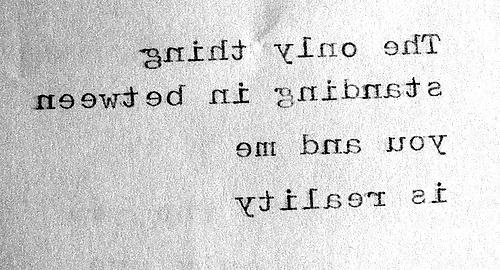 The only thing
standing in between
you and me
is reality